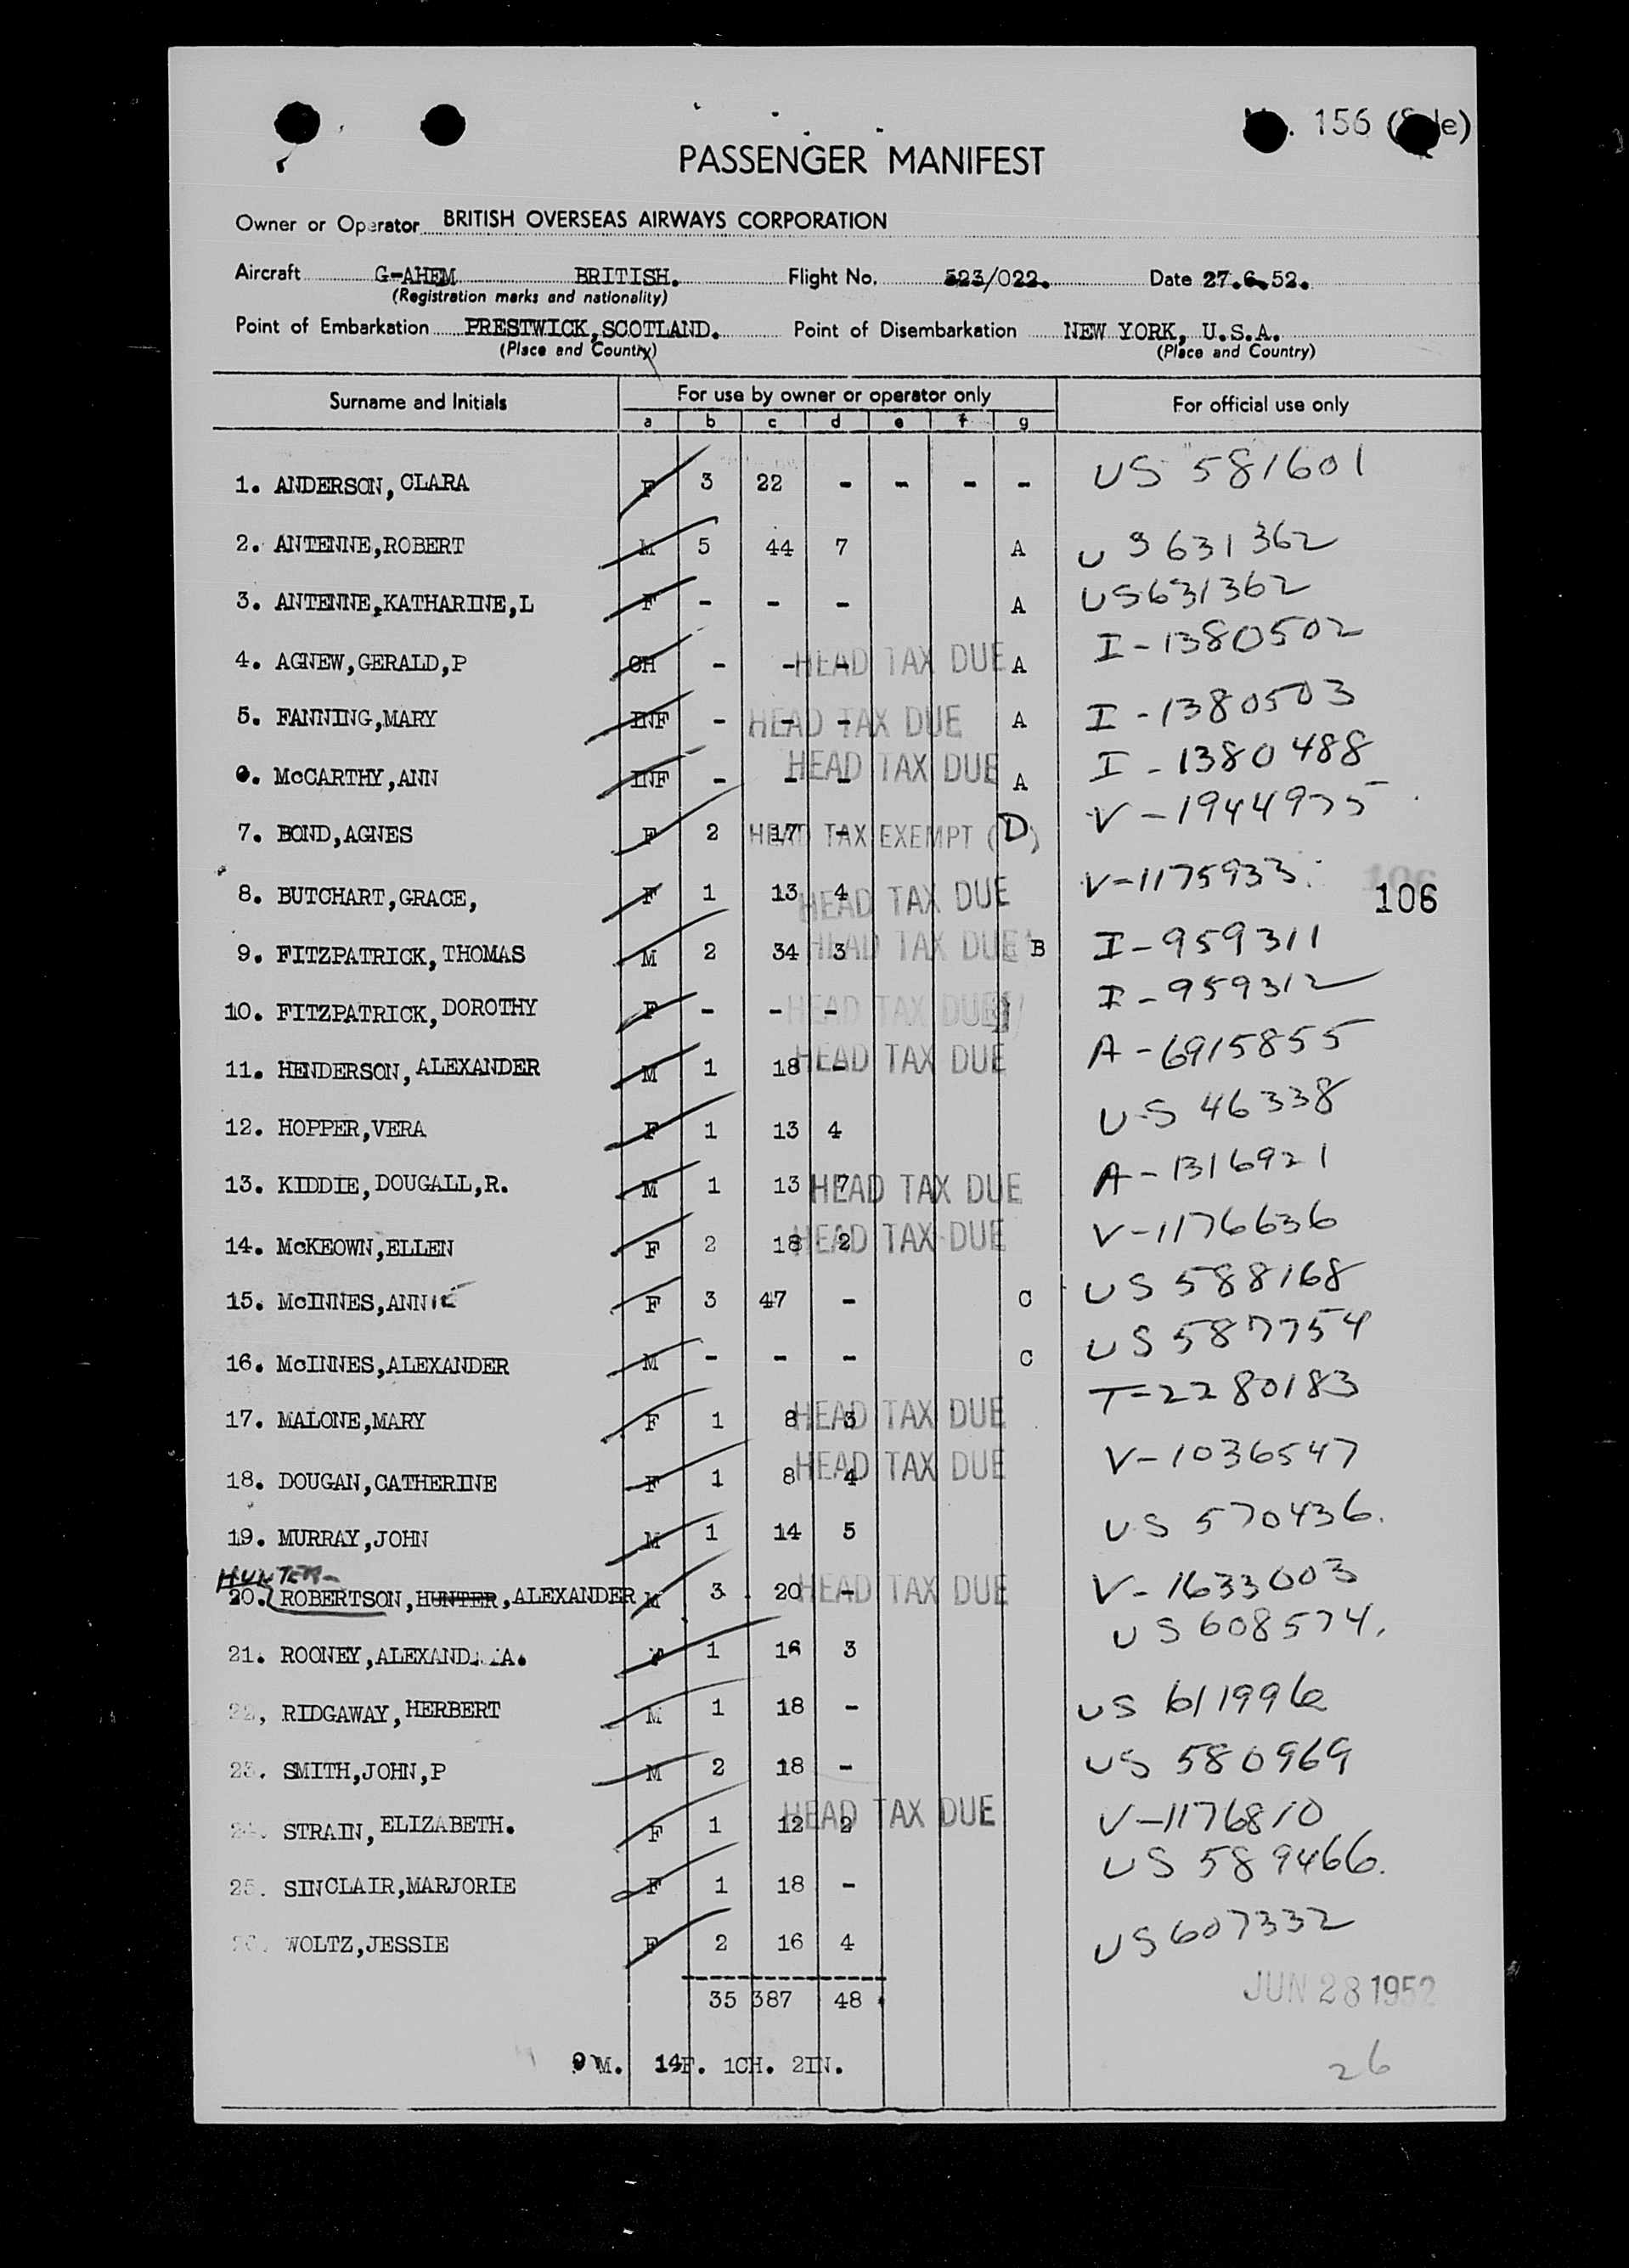 . 156 (S le)
PASSENGER MANIFEST
Owner or Operator BRITISH OVERSEAS AIRWAYS CORPORATION
Aircraft G-AHEM BRITISH. Flight No. 523/022. Date 27.6.52.
(Registration marks and nationality)
Point of Embarkation PRESTWICK, SCOTLAND. Point of Disembarkation NEW YORK, U.S.A.
(Place and Country) (Place and Country)
Surname and Initials For use by owner or operator only For official use only
a b c d e f g
1. ANDERSON, CLARA F 3 22 - - - - US 581601
2. ANTENNE, ROBERT M 5 44 7 A US 631362
3. ANTENNE, KATHARINE, L F - - - A US 631362
4. AGNEW, GERALD, P CH - - - HEAD TAX DUE A I-1380502
5. FANNING, MARY INF - - - HEAD TAX DUE A I-1380503
6. McCARTHY, ANN INF - - - HEAD TAX DUE A I-1380488
7. BOND, AGNES F 2 17 - HEAD TAX EXEMPT (D) V-1944975
8. BUTCHART, GRACE, F 1 13 4 HEAD TAX DUE V-1175933
106
9. FITZPATRICK, THOMAS M 2 34 3 HEAD TAX DUE B I-959311
10. FITZPATRICK, DOROTHY F - - - HEAD TAX DUE I-959312
11. HENDERSON, ALEXANDER M 1 18 - HEAD TAX DUE A-6915855
12. HOPPER, VERA F 1 13 4 US 46338
13. KIDDIE, DOUGALL, R. M 1 13 7 HEAD TAX DUE A-1316921
14. McKEOWN, ELLEN F 2 18 2 HEAD TAX DUE V-1176636
15. McINNES, ANNIE F 3 47 - C US 588168
16. McINNES, ALEXANDER M - - - C US 587754
17. MALONE, MARY F 1 8 3 HEAD TAX DUE T-2280183
18. DOUGAN, CATHERINE F 1 8 4 HEAD TAX DUE V-1036547
19. MURRAY, JOHN M 1 14 5 US 570436.
HUNTER-
20. ROBERTSON, HUNTER, ALEXANDER M 3 20 - HEAD TAX DUE V-1633003
21. ROONEY, ALEXAND A. 1 16 3 US 608574.
22, RIDGAWAY, HERBERT M 1 18 - US 611996
23. SMITH, JOHN, P M 2 18 - US 580969
24. STRAIN, ELIZABETH. F 1 12 2 HEAD TAX DUE V-1176810
25. SINCLAIR, MARJORIE F 1 18 - US 589466.
26. WOLTZ, JESSIE F 2 16 4 US 607332
35 387 48
JUN 28 1952
9 M. 14F. 1CH. 2IN.
26